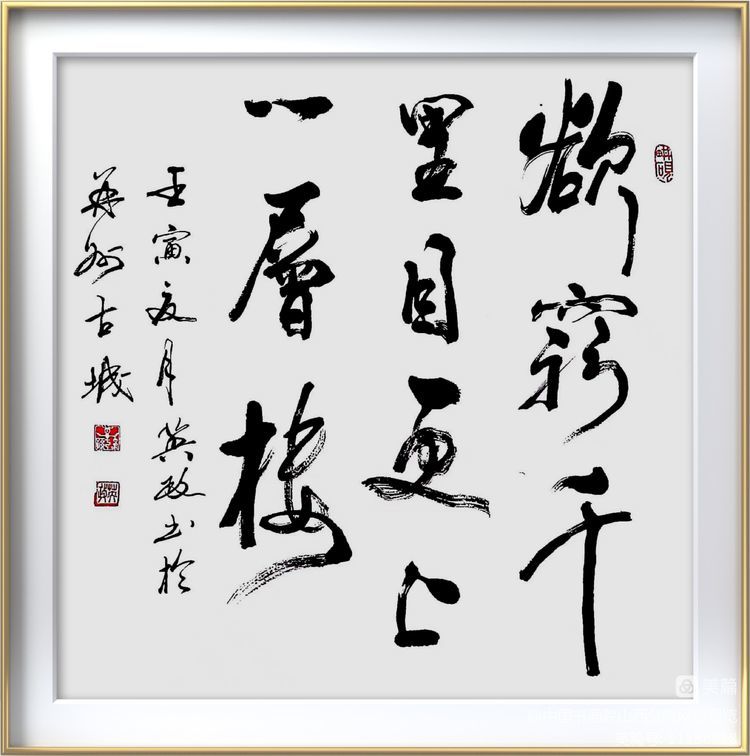 欲窮千
里目更上
一層樓
壬寅夏月英政书於
并州古城
美篇